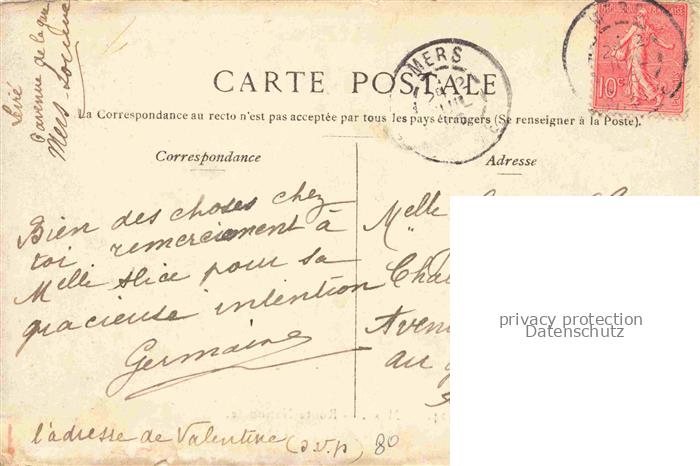 Leré
8 avenue de la gare
Mers-
CARTE POSTALE
MERS
10c
La Correspondance au recto n'est pas acceptée par tous les pays étrangers (Se renseigner à la Poste).
Correspondance
Bien des choses chez
toi, remerciement à
Melle Alice pour sa
gracieuse intention
Germaine
l'adresse de Valentine (s.v.p) 80
Adresse
Melle
Aven
au
privacy protection
Datenschutz